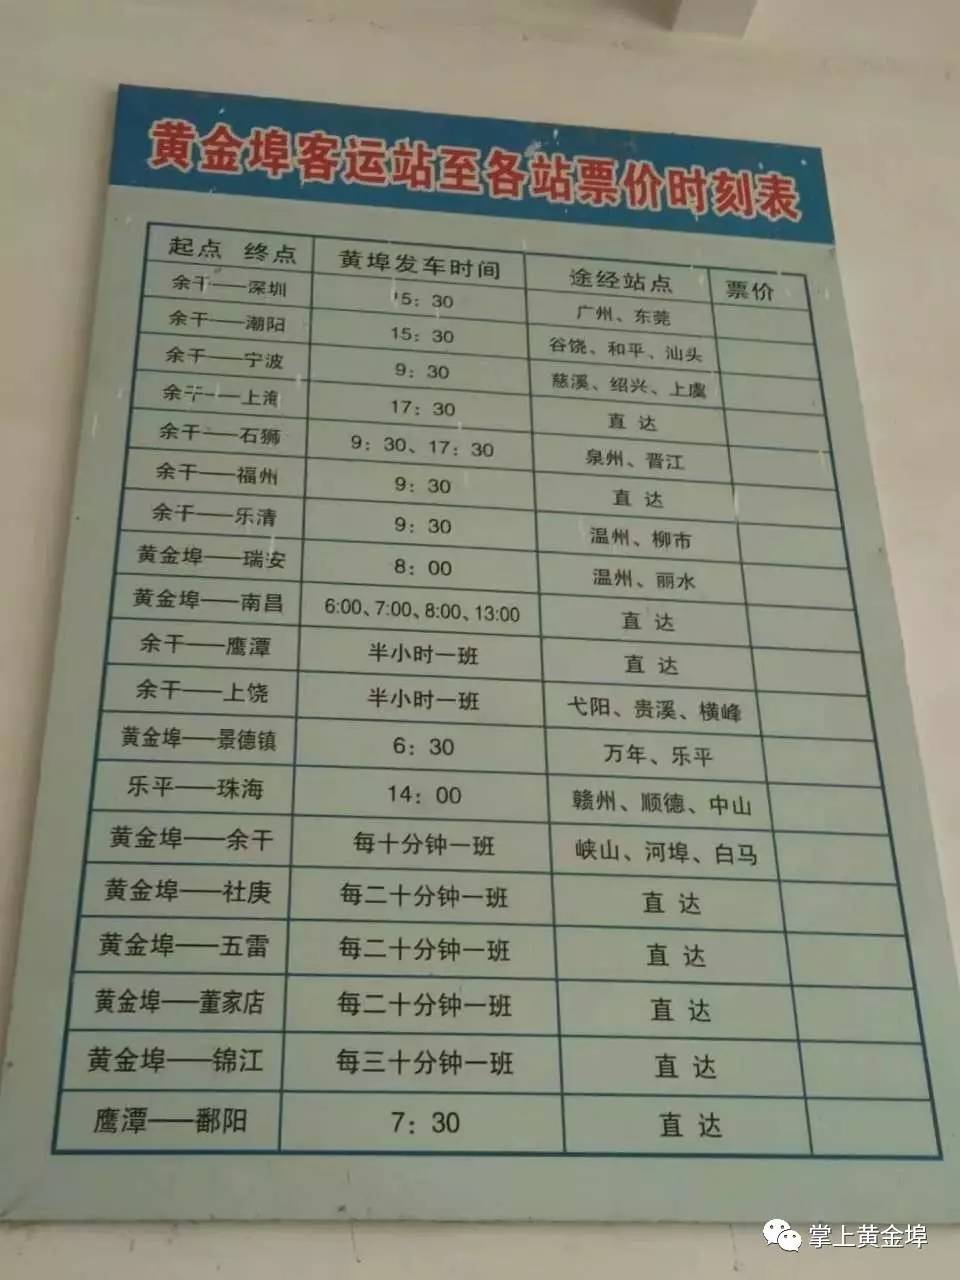 黄金埠客运站至各站票价时刻表
起点 终点 黄埠发车时间 途经站点 票价
余干——深圳 15：30 广州、东莞
余干——潮阳 15：30 谷饶、和平、汕头
余干——宁波 9：30 慈溪、绍兴、上虞
余干——上海 17：30 直 达
余干——石狮 9：30、17：30 泉州、晋江
余干——福州 9：30 直 达
余干——乐清 9：30 温州、柳市
黄金埠——瑞安 8：00 温州、丽水
黄金埠——南昌 6:00、7:00、8:00、13:00 直 达
余干——鹰潭 半小时一班 直 达
余干——上饶 半小时一班 弋阳、贵溪、横峰
黄金埠——景德镇 6：30 万年、乐平
乐平——珠海 14：00 赣州、顺德、中山
黄金埠——余干 每十分钟一班 峡山、河埠、白马
黄金埠——社庚 每二十分钟一班 直 达
黄金埠——五雷 每二十分钟一班 直 达
黄金埠——董家店 每二十分钟一班 直 达
黄金埠——锦江 每三十分钟一班 直 达
鹰潭——鄱阳 7：30 直 达
掌上黄金埠